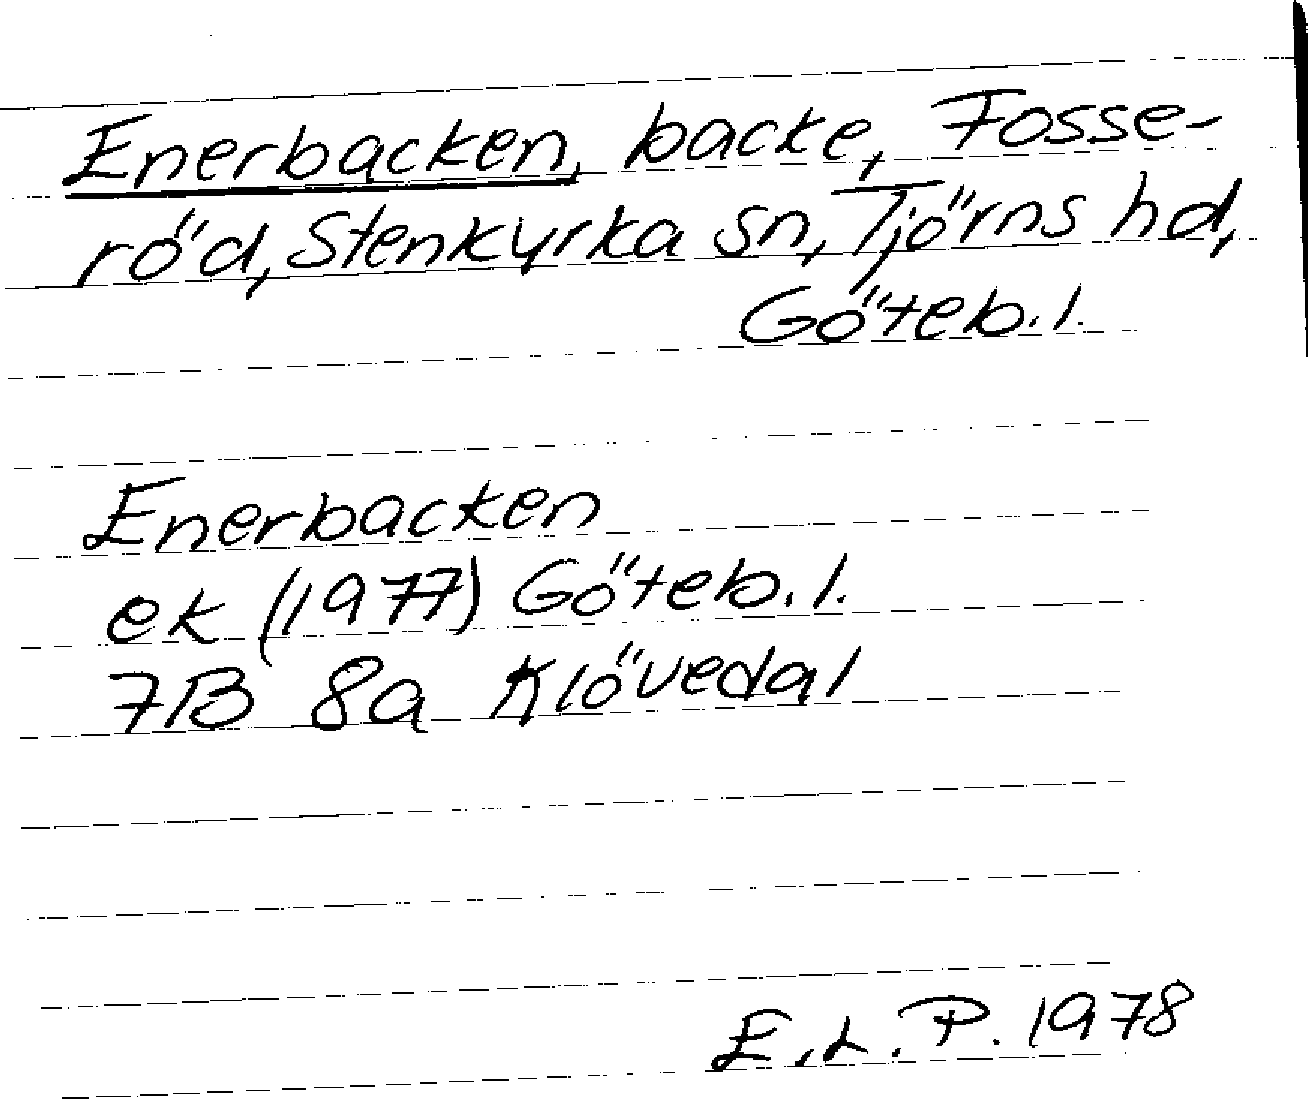 Enerbacken, backe, Fosse-
röd, Stenkyrka sn, Tjörns hd,
Göteb. l.
Enerbacken
ek (1977) Göteb. l.
7B 8a Klövedal
E. L. P. 1978